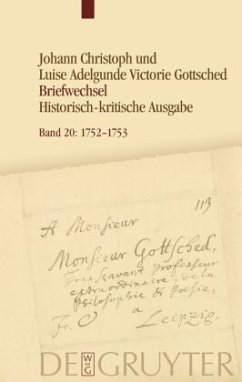 Johann Christoph und
Luise Adelgunde Victorie Gottsched
Briefwechsel
Historisch-kritische Ausgabe
Band 20: 1752–1753
113
A Monsieur
Monsieur Gottsched,
Professeur
extraordinaire de la
Philosophie & Poesie,
Fr. à Leipzig.
DE GRUYTER
W
DE
G